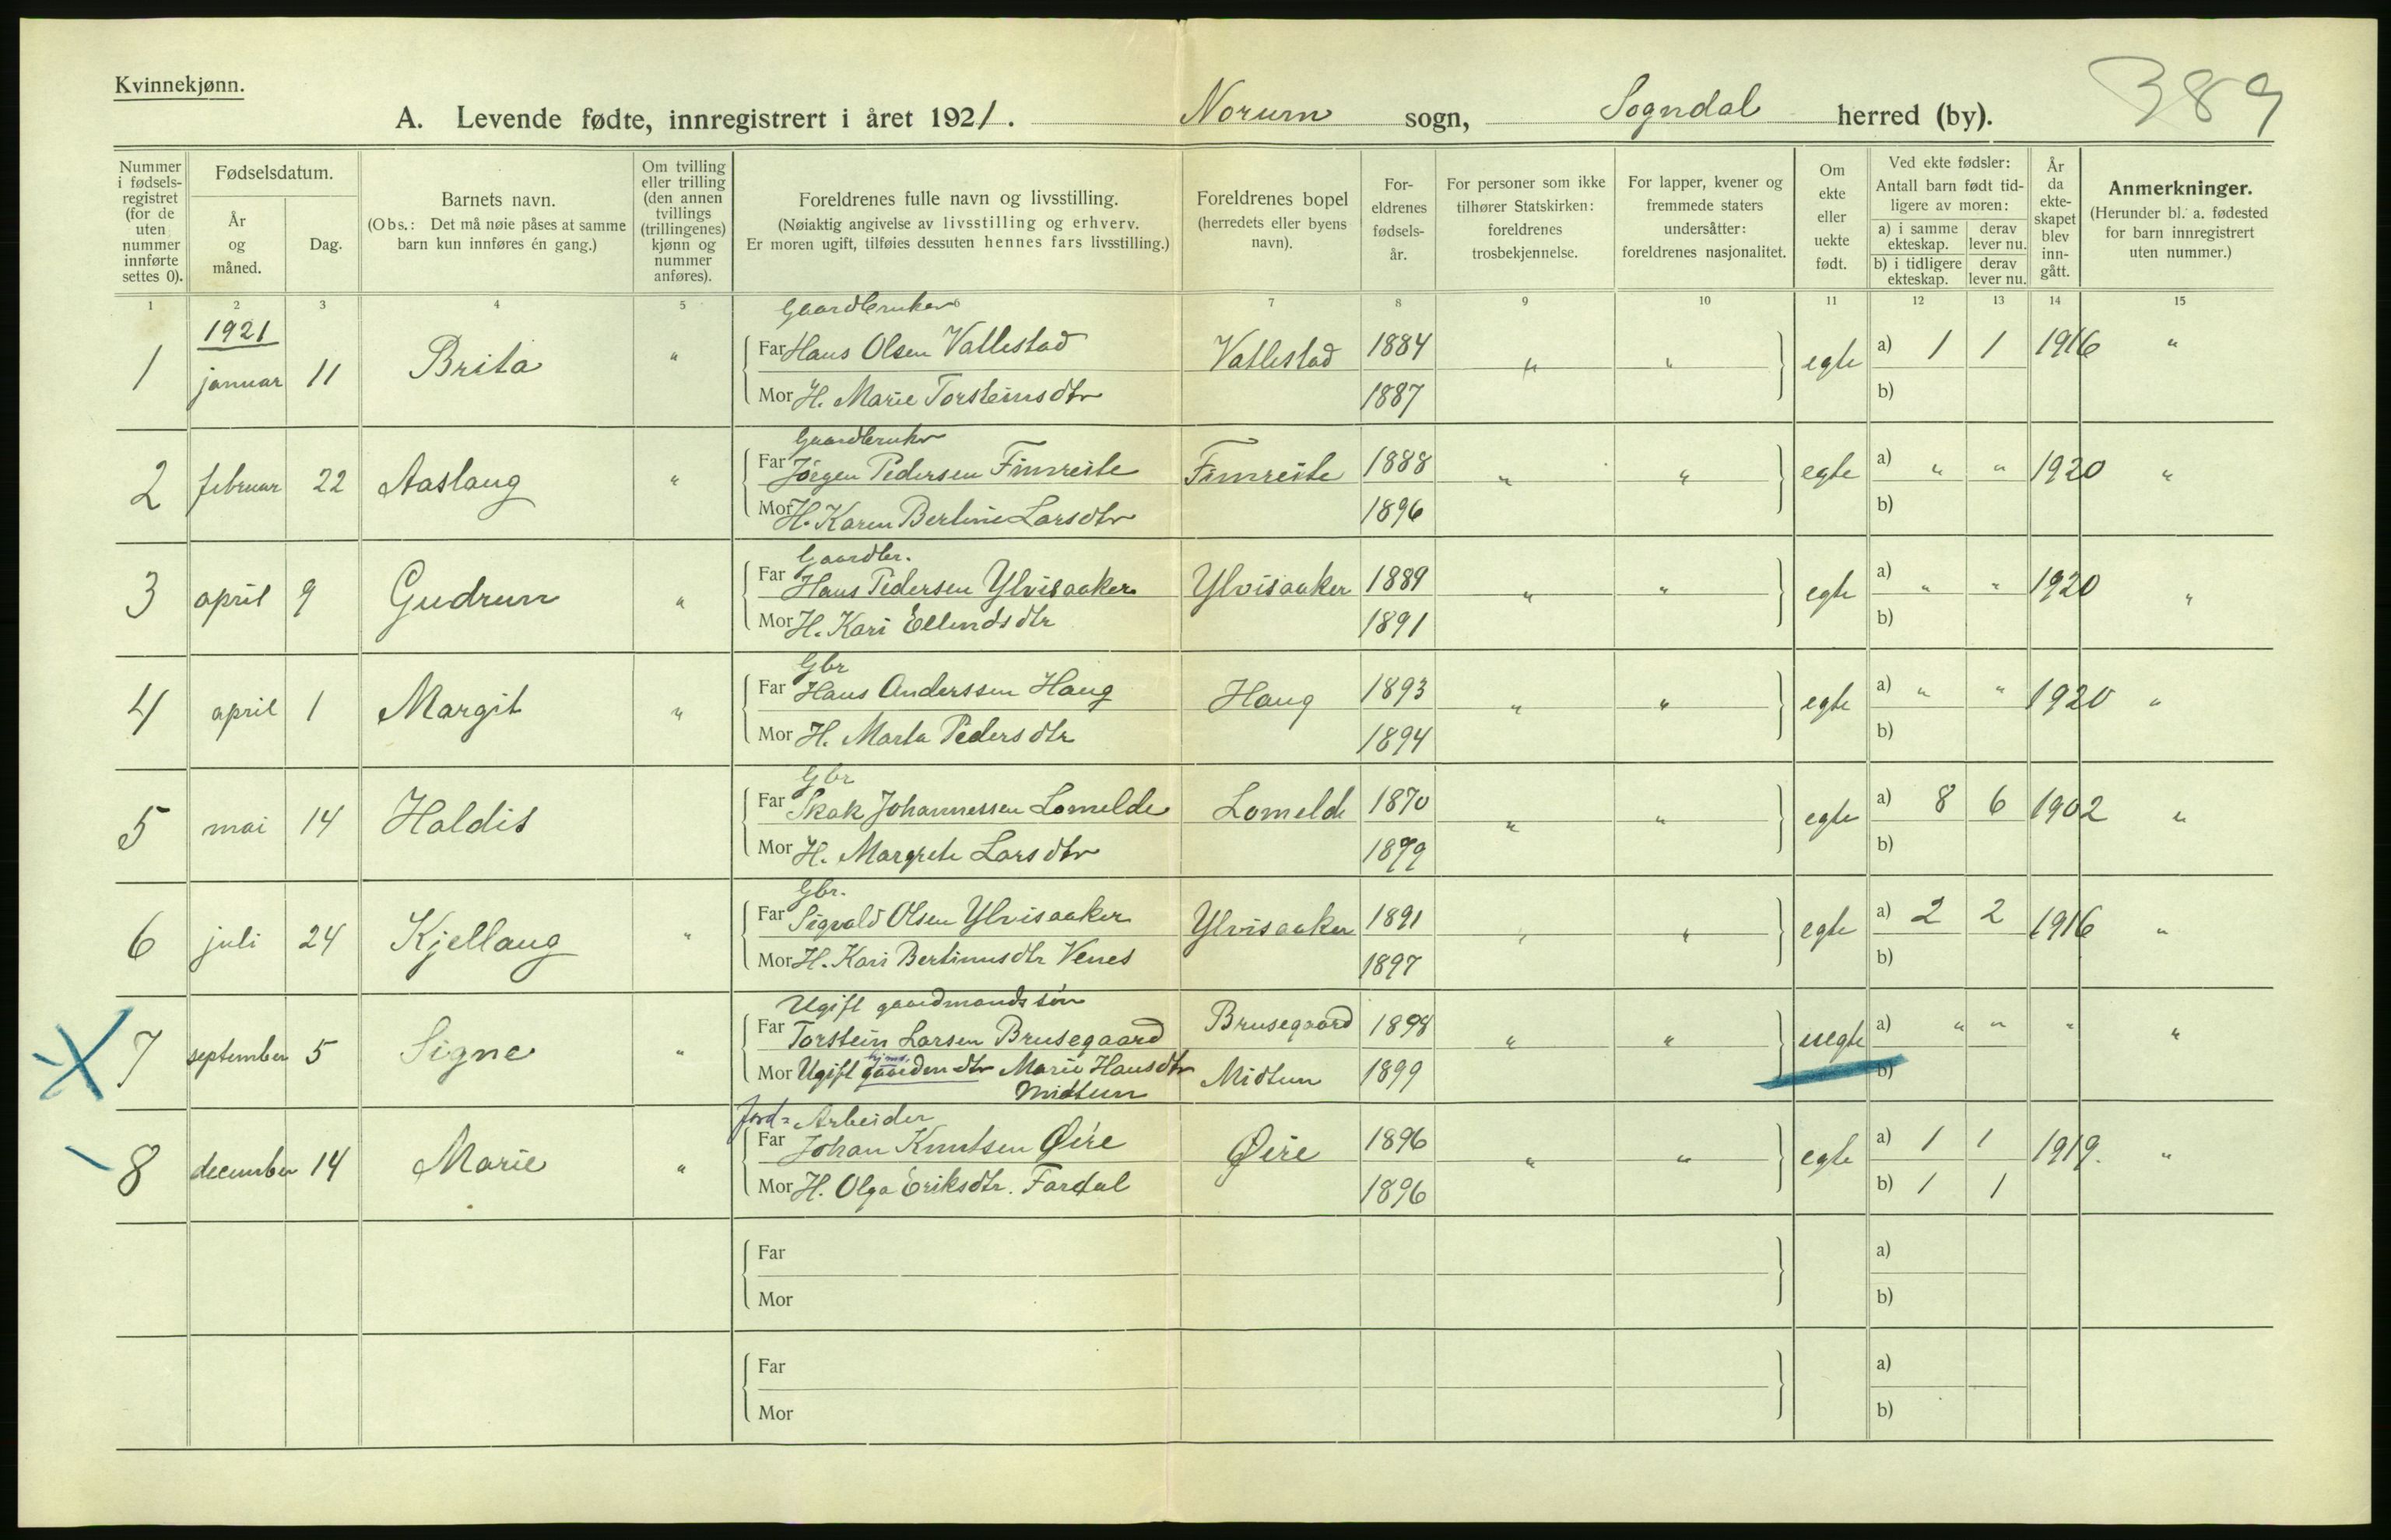 Kvinnekjønn.
389
A. Levende fødte, innregistrert i året 1921. Norum sogn, Sogndal herred (by).
Nummer i fødsels-registret (for de uten nummer innførte settes 0).
Fødselsdatum.
År og måned.
Dag.
Barnets navn.
(Obs.: Det må nøie påses at samme barn kun innføres én gang.)
Om tvilling eller trilling (den annen tvillings (trillingenes) kjønn og nummer anføres).
Foreldrenes fulle navn og livsstilling.
(Nøiaktig angivelse av livsstilling og erhverv.
Er moren ugift, tilføies dessuten hennes fars livsstilling.)
Foreldrenes bopel (herredets eller byens navn).
For-eldrenes fødsels-år.
For personer som ikke tilhører Statskirken: foreldrenes trosbekjennelse.
For lapper, kvener og fremmede staters undersåtter: foreldrenes nasjonalitet.
Om ekte eller uekte født.
Ved ekte fødsler:
Antall barn født tid-ligere av moren:
a) i samme ekteskap. derav lever nu.
b) i tidligere ekteskap. derav lever nu.
År da ekte-skapet blev inn-gått.
Anmerkninger.
(Herunder bl. a. fødested for barn innregistrert uten nummer.)
1 2 3 4 5 6 7 8 9 10 11 12 13 14 15
1921
Gaardbruker
1 januar 11 Brita " Far Hans Olsen Vatlestad Vatlestad 1884 " " egte a) 1 1 1916 "
Mor H. Marie Torsteinsdtr 1887 b)
Gaardbruker
2 februar 22 Aaslaug " Far Jörgen Pedersen Fimreite Fimreite 1888 " " egte a) " " 1920 "
Mor H. Karen Bertine Larsdtr 1896 b)
Gaardbr.
3 april 9 Gudrun " Far Hans Pedersen Ylvisaaker Ylvisaaker 1889 " " egte a) " " 1920 "
Mor H. Kari Ellendsdtr 1891 b)
Gbr
4 april 1 Margit " Far Hans Anderssen Haug Haug 1893 " " egte a) " " 1920 "
Mor H. Marta Pedersdtr 1894 b)
Gbr
5 mai 14 Haldis Far Skak Johannessen Lomelde Lomelde 1870 " " egte a) 8 6 1902 "
Mor H. Margrete Larsdtr 1879 b)
Gbr.
6 juli 24 Kjellaug " Far Sigvald Olsen Ylvisaaker Ylvisaaker 1891 " " egte a) 2 2 1916 "
Mor H. Kari Bertinusdtr Venes 1897 b)
Ugift gaardmandssön
X 7 september 5 Signe " Far Torstein Larsen Brusegaard Brusegaard 1898 " " uegte a) " " " "
Mor Ugift gaarden dtr Marie Hansdtr Midtun 1899 b)
Midtun
Jord= Arbeider
8 december 14 Marie " Far Johan Knutsen Øire Øire 1896 " " egte a) 1 1 1919. "
Mor H. Olga Eriksdtr. Fardal 1896 b) 1 1
Far a)
Mor b)
Far a)
Mor b)